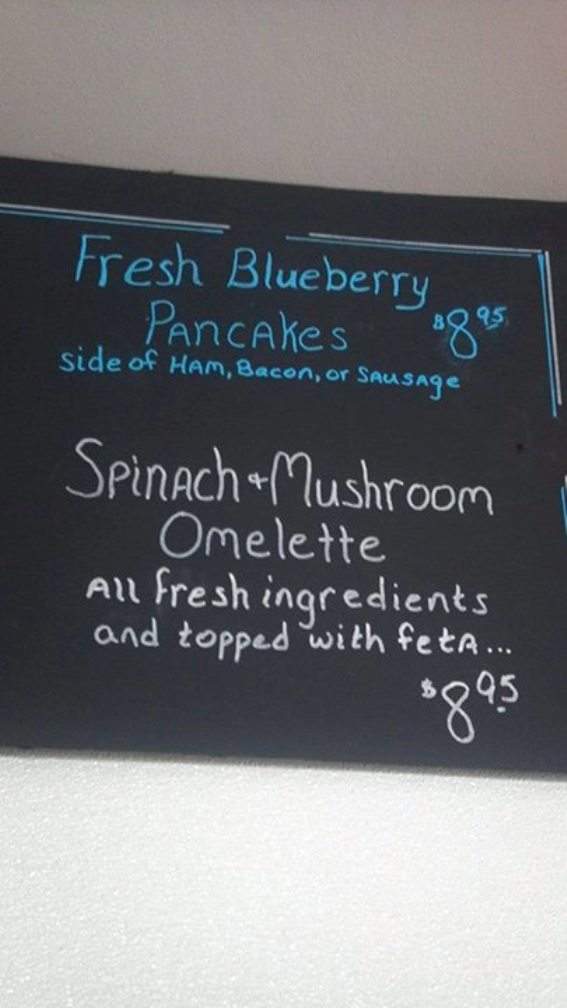 Fresh Blueberry
Pancakes $8.95
side of Ham, Bacon, or Sausage
Spinach + Mushroom
Omelette
All fresh ingredients
and topped with feta...
$8.95